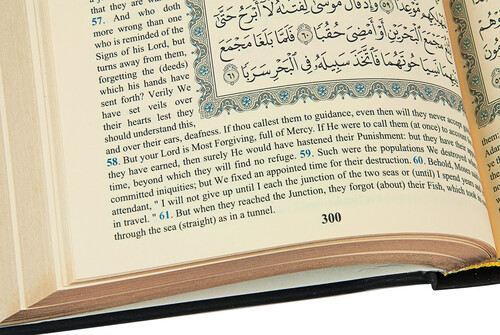 that they are wa
57. And who doth
more wrong than one
who is reminded of the
Signs of his Lord, but
turns away from them,
forgetting the (deeds)
which his hands have
sent forth? Verily We
have set veils over
their hearts lest they
should understand this,
and over their ears, deafness. If thou callest them to guidance, even then will they never accept
58. But your Lord is Most Forgiving, full of Mercy. If He were to call them (at once) to account
they have earned, then surely He would have hastened their Punishment: but they have their
time, beyond which they will find no refuge. 59. Such were the populations We destroyed when
committed iniquities; but We fixed an appointed time for their destruction. 60. Behold, Moses said
attendant, " I will not give up until I each the junction of the two seas or (until) I spend years
in travel. " 61. But when they reached the Junction, they forgot (about) their Fish, which took
through the sea (straight) as in a tunnel.
وَإِذْ قَالَ مُوسَىٰ لِفَتَىٰهُ لَآ أَبْرَحُ حَتَّىٰ
مَجْمَعَ ٱلْبَحْرَيْنِ أَوْ أَمْضِىَ حُقُبًا ٦٠ فَلَمَّا بَلَغَا مَجْمَعَ
نَسِيَا حُوتَهُمَا فَٱتَّخَذَ سَبِيلَهُۥ فِى ٱلْبَحْرِ سَرَبًا ٦١
300